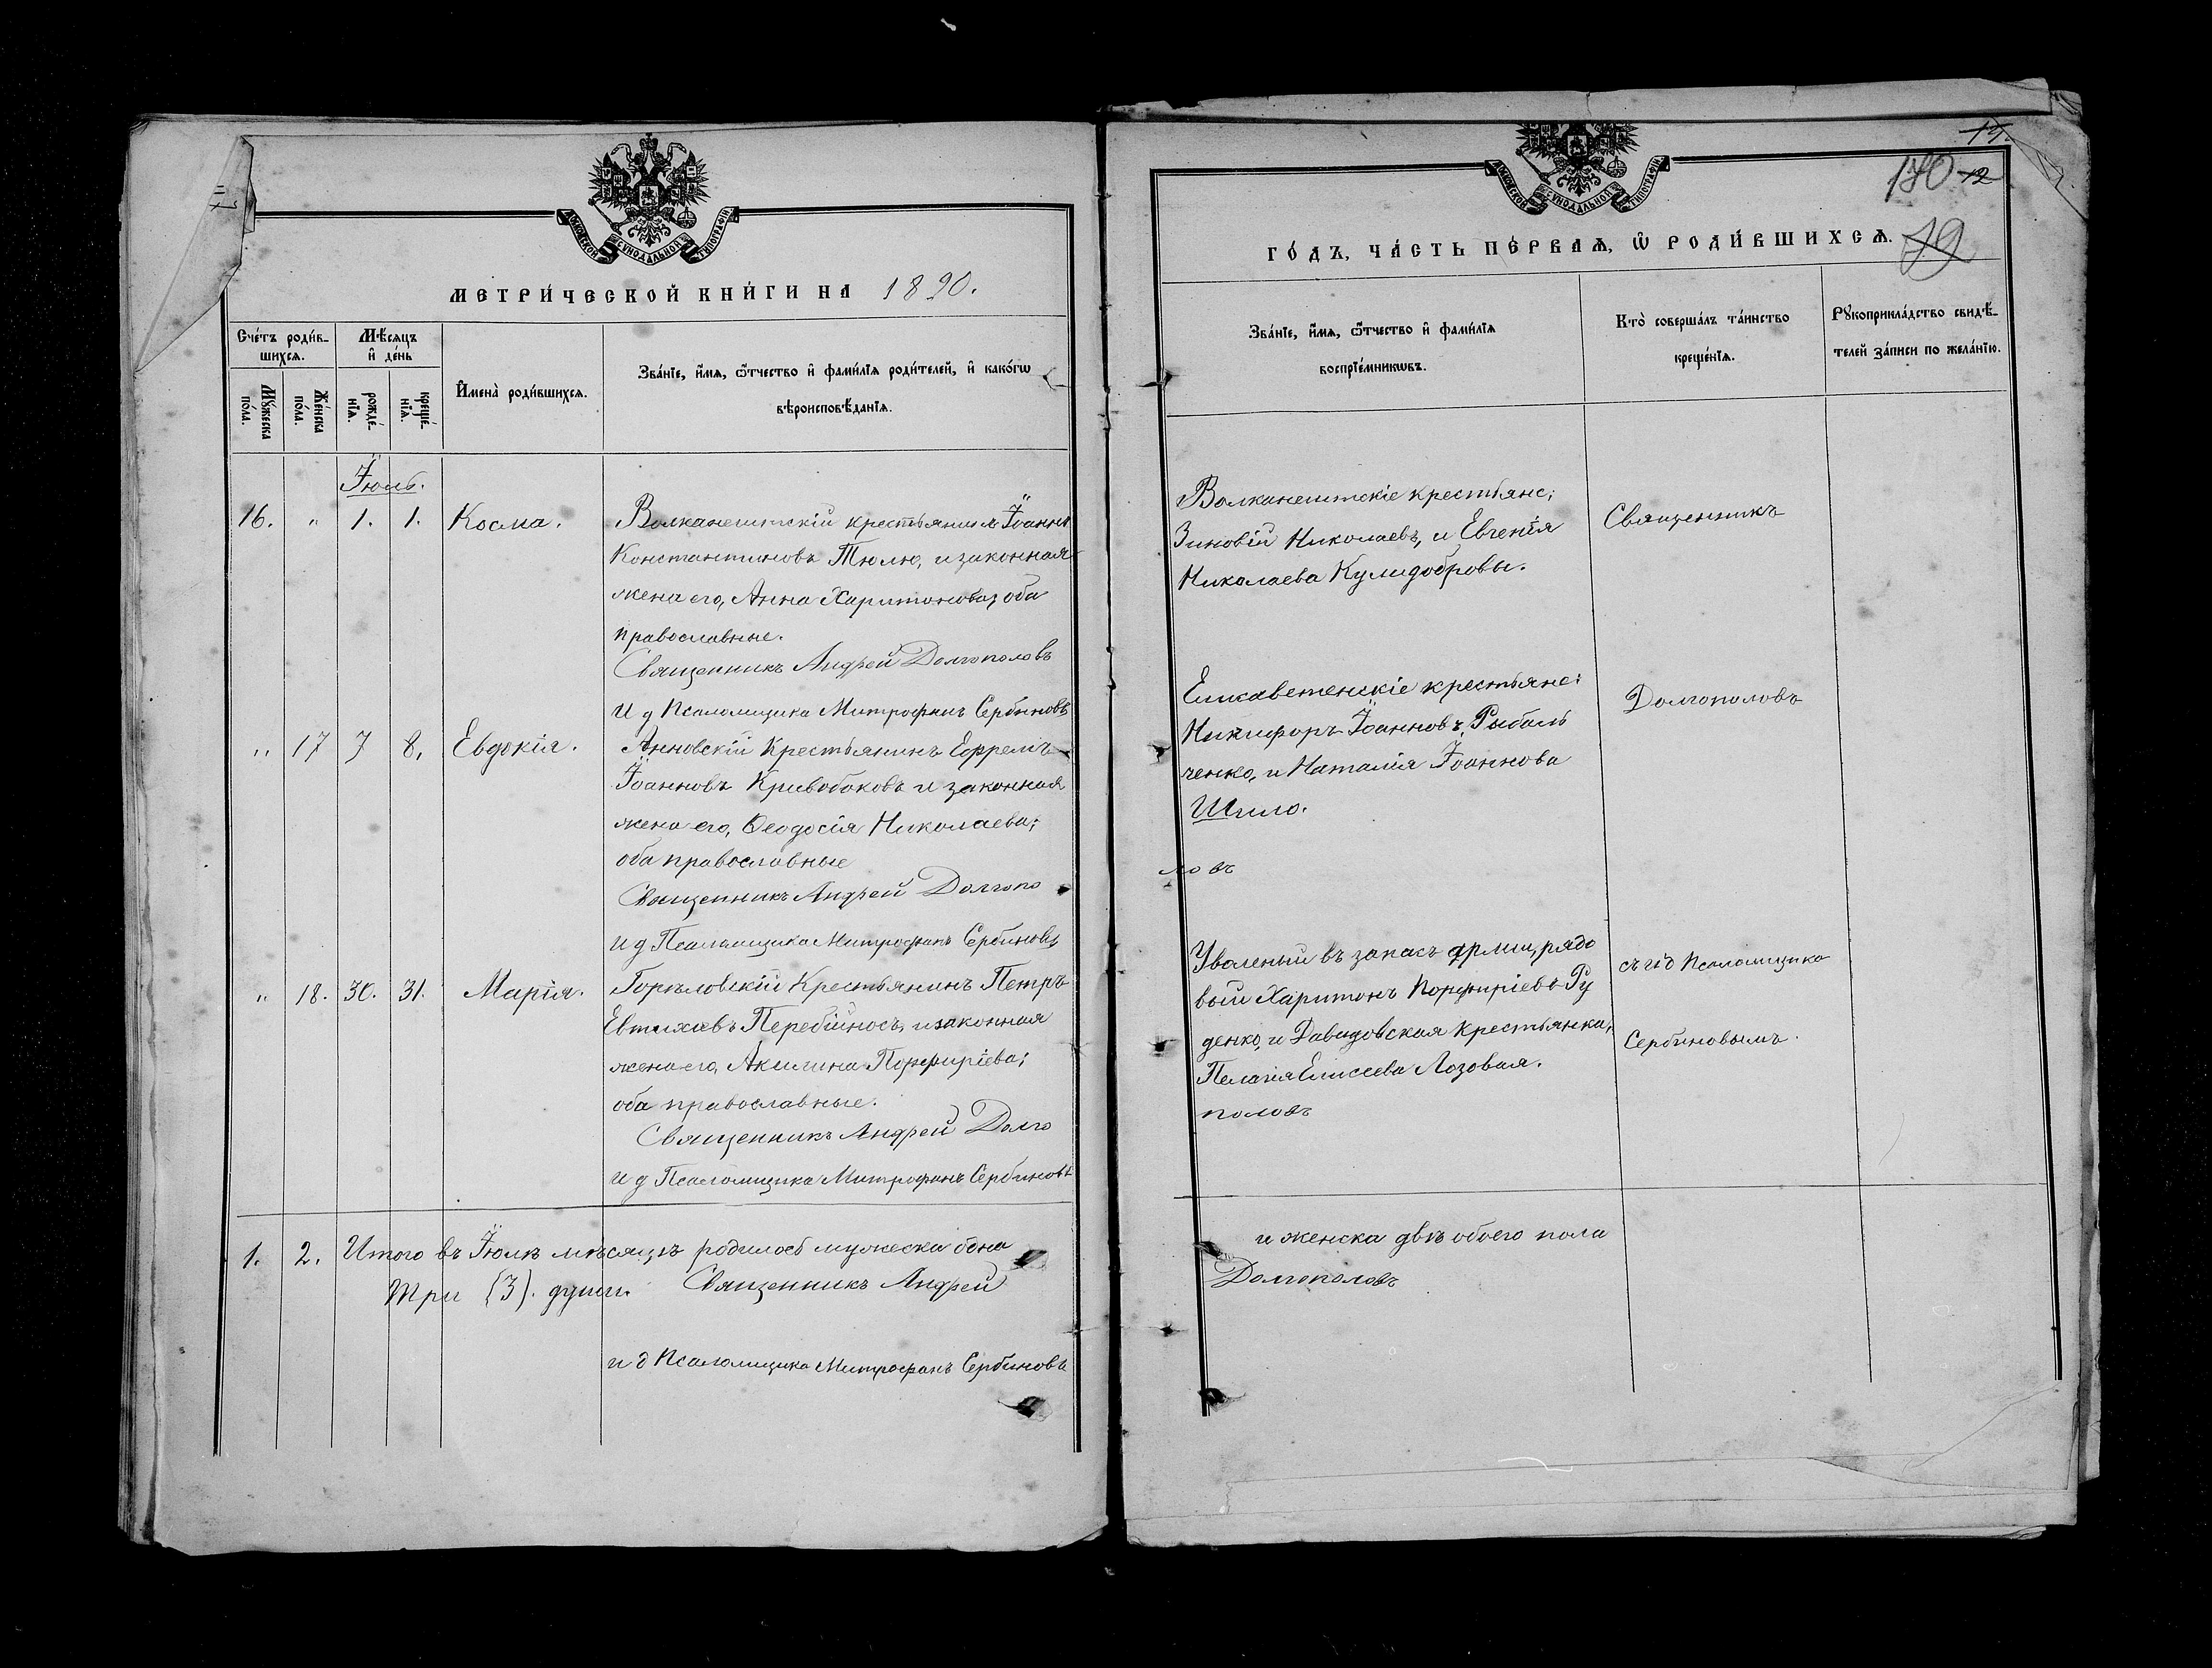 МОСКОВСКОЙ СѴНОДАЛЬНОЙ ТИПОГРАФІИ
МЕТРИ́ЧЕСКОЙ КНИ́ГИ НА 1890.
Сче́тъ роди́в-
шихся.
Му́жеска
по́ла.
Же́нска
по́ла.
Мѣ́сяцъ
и҆ де́нь
рожде́-
нїѧ.
креще́-
нїѧ.
И҆мена̀ роди́вшихсѧ.
Зва́нїе, и҆́мѧ, ѻ҆́тчество и҆ фами́лїѧ роди́телей, и҆ како́гѡ
вѣроисповѣ́данїѧ.
Іюль.
16. " 1. 1. Косма.
Волканештскій крестьянинъ Іоаннъ
Константиновъ Тюлю, и законная
жена его, Анна Харитонова; оба
православные.
Священникъ Андрей Долгополовъ
И д Псаломщика Митрофанъ Сербиновъ
" 17 7 8. Евдокія.
Анновскій Крестьянинъ Ефремъ
Іоанновъ Кривобоковъ и законная
жена его, Ѳеодосія Николаева;
оба православные
Священникъ Андрей Долгопо
и д Псаломщика Митрофанъ Сербиновъ
" 18. 30. 31. Марія.
Горѣловскій Крестьянинъ Петръ
Евтихіевъ Перебійносъ, и законная
жена его, Акилина Порфиріева;
оба православные.
Священникъ Андрей Долго
и д Псаломщика Митрофанъ Сербиновъ
1. 2. Итого въ Іюлѣ мѣсяцѣ родилось мужеска одна
три (3). души. Священникъ Андрей
и д Псаломщика Митрофанъ Сербиновъ
МОСКОВСКОЙ СѴНОДАЛЬНОЙ ТИПОГРАФІИ
170 12
19
ГО́ДЪ, ЧА́СТЬ ПЕ́РВАѦ, Ѡ҆ РОДИ́ВШИХСѦ.
Зва́нїе, и҆́мѧ, ѻ҆́тчество и҆ фами́лїѧ
воспрїе́мникѡвъ.
Кто̀ соверша́лъ та́инство
креще́нїѧ.
Рꙋкоприкла́дство свидѣ́-
телей за́писи по жела́нїю.
Волканештскіе крестьяне;
Зиновій Николаевъ, и Евгенія
Николаева Кулидобровы.
Священникъ
Елисаветскіе крестьяне:
Никифоръ Іоанновъ Рыбаль
ченко, и Наталія Іоаннова
Шило.
Долгополовъ
ловъ
Уволеный въ запасъ арміи, рядо
вый Харитонъ Порфиріевъ Ру
денко, и Давидовская крестьянка,
Пелагія Елисеева Лозовая.
половъ
съ и д Псаломщика
Сербиновымъ.
и женска двѣ обоего пола
Долгополовъ